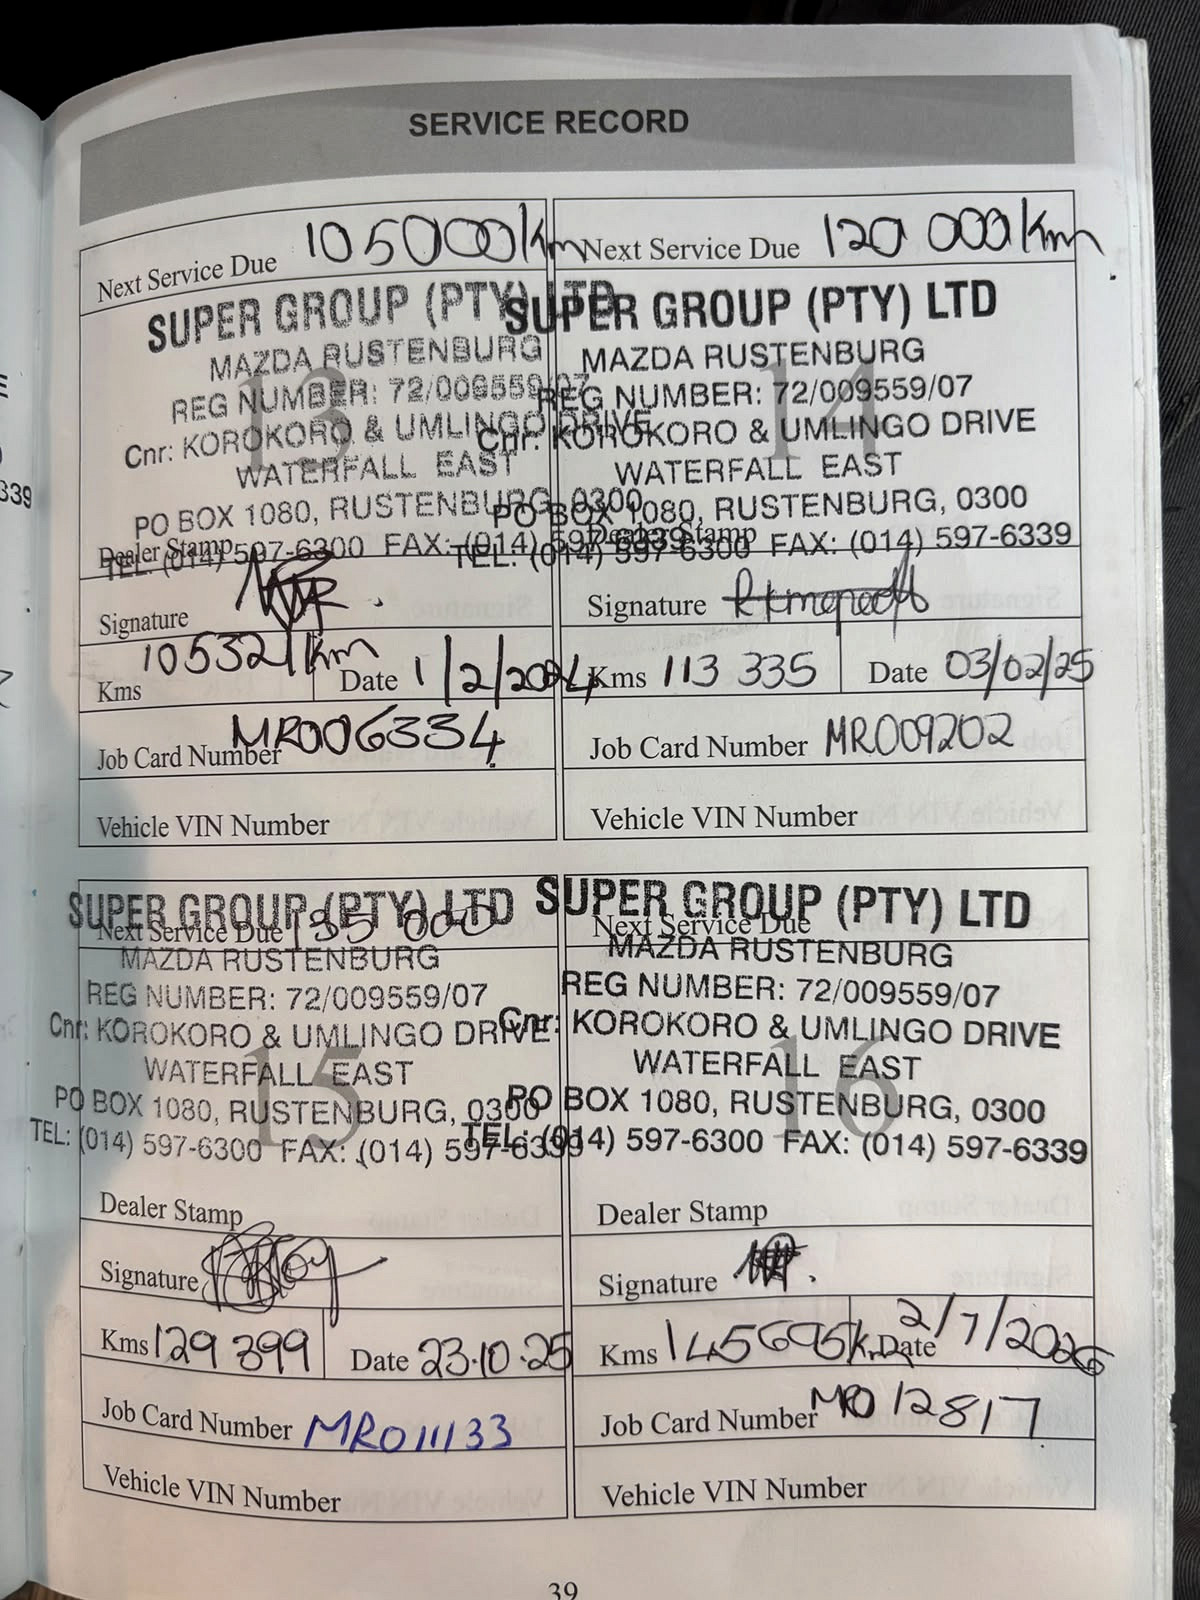 SERVICE RECORD
Next Service Due 105000km
SUPER GROUP (PTY) LTD
MAZDA RUSTENBURG
REG NUMBER: 72/009559/07
Cnr: KOROKORO & UMLINGO DRIVE
WATERFALL EAST
PO BOX 1080, RUSTENBURG, 0300
Dealer Stamp
TEL: (014) 597-6300 FAX: (014) 597-6339
13
Signature
Kms 105321km Date 1/2/2024
Job Card Number MR006334
Vehicle VIN Number
Next Service Due 120 000km
SUPER GROUP (PTY) LTD
MAZDA RUSTENBURG
REG NUMBER: 72/009559/07
Cnr: KOROKORO & UMLINGO DRIVE
WATERFALL EAST
PO BOX 1080, RUSTENBURG, 0300
Dealer Stamp
TEL: (014) 597-6300 FAX: (014) 597-6339
14
Signature
Kms 113 335 Date 03/02/25
Job Card Number MR009202
Vehicle VIN Number
SUPER GROUP (PTY) LTD
Next Service Due 135 000
MAZDA RUSTENBURG
REG NUMBER: 72/009559/07
Cnr: KOROKORO & UMLINGO DRIVE
WATERFALL EAST
PO BOX 1080, RUSTENBURG, 0300
TEL: (014) 597-6300 FAX: (014) 597-6339
15
Dealer Stamp
Signature
Kms 129 399 Date 23.10.25
Job Card Number MR011133
Vehicle VIN Number
SUPER GROUP (PTY) LTD
Next Service Due
MAZDA RUSTENBURG
REG NUMBER: 72/009559/07
Cnr: KOROKORO & UMLINGO DRIVE
WATERFALL EAST
PO BOX 1080, RUSTENBURG, 0300
TEL: (014) 597-6300 FAX: (014) 597-6339
16
Dealer Stamp
Signature
Kms 145695km Date 2/7/2026
Job Card Number MR012817
Vehicle VIN Number
39
339